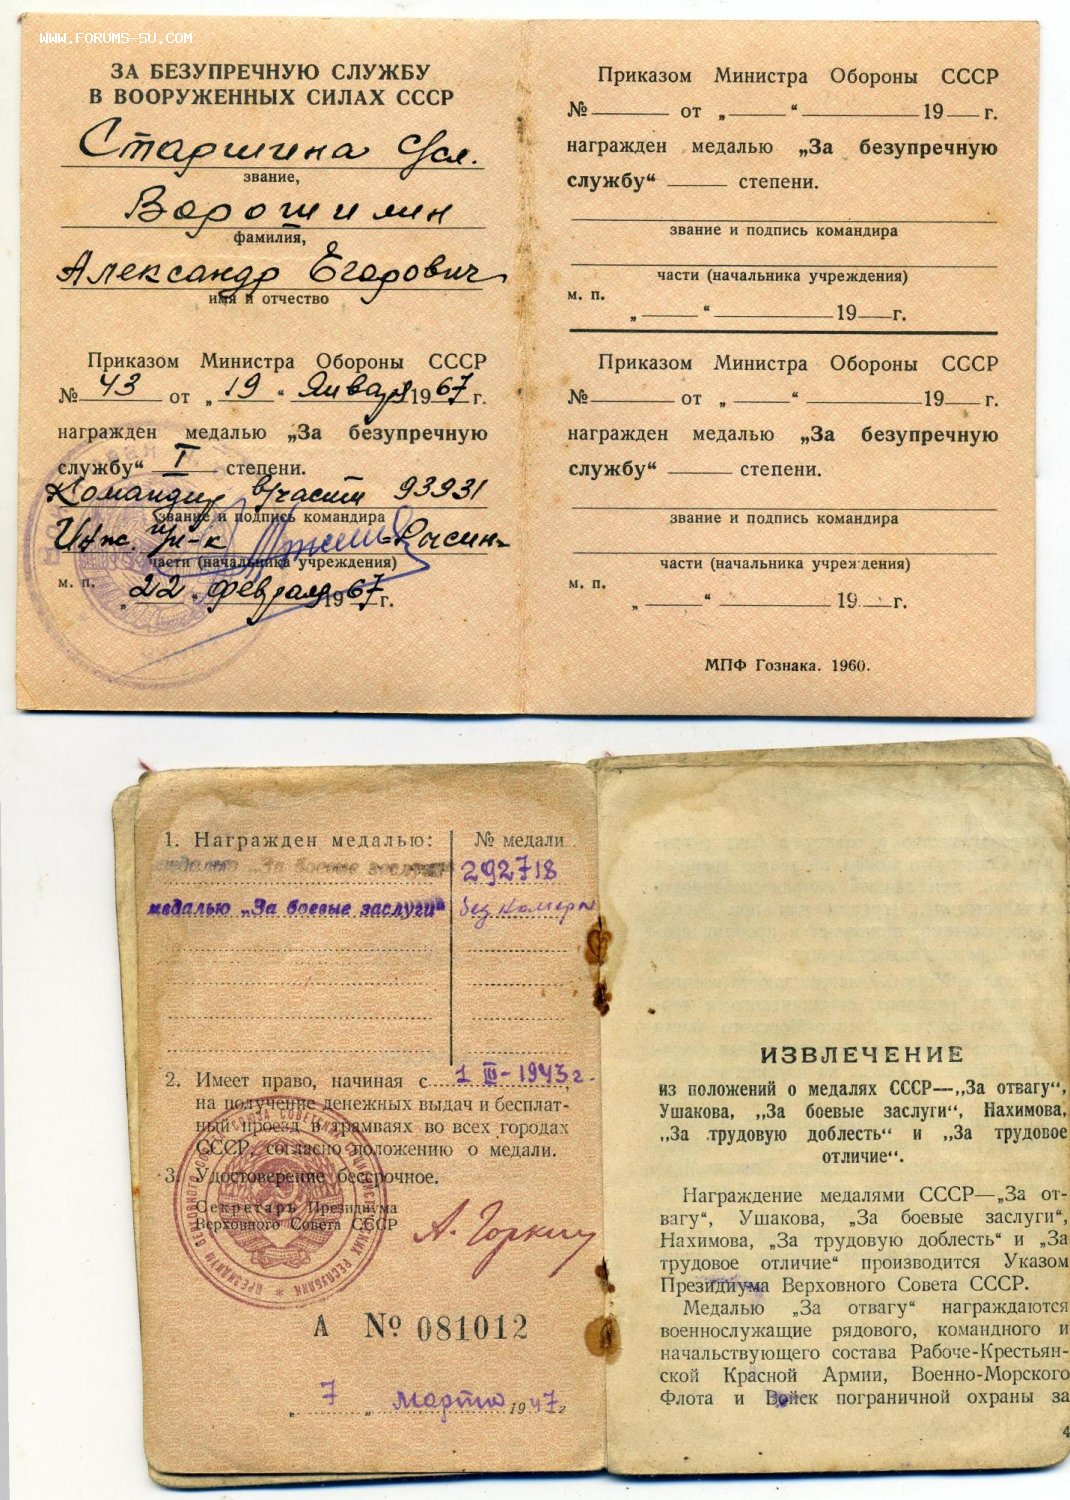 WWW.FORUMS-SU.COM
ЗА БЕЗУПРЕЧНУЮ СЛУЖБУ
В ВООРУЖЕННЫХ СИЛАХ СССР
Старшина с/сл.
звание,
Ворошилин
фамилия,
Александр Егорович
имя и отчество
Приказом Министра Обороны СССР
№ 43 от „19“ Января 1967 г.
награжден медалью „За безупречную
службу“ I степени.
Командир в/части 93931
звание и подпись командира
Инж. п/п-к Рысин
части (начальника учреждения)
м. п.
„22“ февраля 1967 г.
Приказом Министра Обороны СССР
№ от „ “ 19 г.
награжден медалью „За безупречную
службу“ степени.
звание и подпись командира
части (начальника учреждения)
м. п.
„ “ 19 г.
Приказом Министра Обороны СССР
№ от „ “ 19 г.
награжден медалью „За безупречную
службу“ степени.
звание и подпись командира
части (начальника учреждения)
м. п.
„ “ 19 г.
МПФ Гознака. 1960.
1. Награжден медалью: № медали
медалью „За боевые заслуги“ 292718
медалью „За боевые заслуги“ без номера
2. Имеет право, начиная с 1 III-1943 г.,
на получение денежных выдач и бесплат-
ный проезд в трамваях во всех городах
СССР, согласно положению о медали.
3. Удостоверение бессрочное.
Секретарь Президиума
Верховного Совета СССР
А. Горкин
ПРЕЗИДИУМ ВЕРХОВНОГО СОВЕТА СОЮЗА СОВЕТСКИХ СОЦИАЛИСТИЧЕСКИХ РЕСПУБЛИК
А № 081012
„7“ марта 1947 г
ИЗВЛЕЧЕНИЕ
из положений о медалях СССР—„За отвагу“,
Ушакова, „За боевые заслуги“, Нахимова,
„За трудовую доблесть“ и „За трудовое
отличие“.
Награждение медалями СССР—„За от-
вагу“, Ушакова, „За боевые заслуги“,
Нахимова, „За трудовую доблесть“ и „За
трудовое отличие“ производится Указом
Президиума Верховного Совета СССР.
Медалью „За отвагу“ награждаются
военнослужащие рядового, командного и
начальствующего состава Рабоче-Крестьян-
ской Красной Армии, Военно-Морского
Флота и Войск пограничной охраны за
4